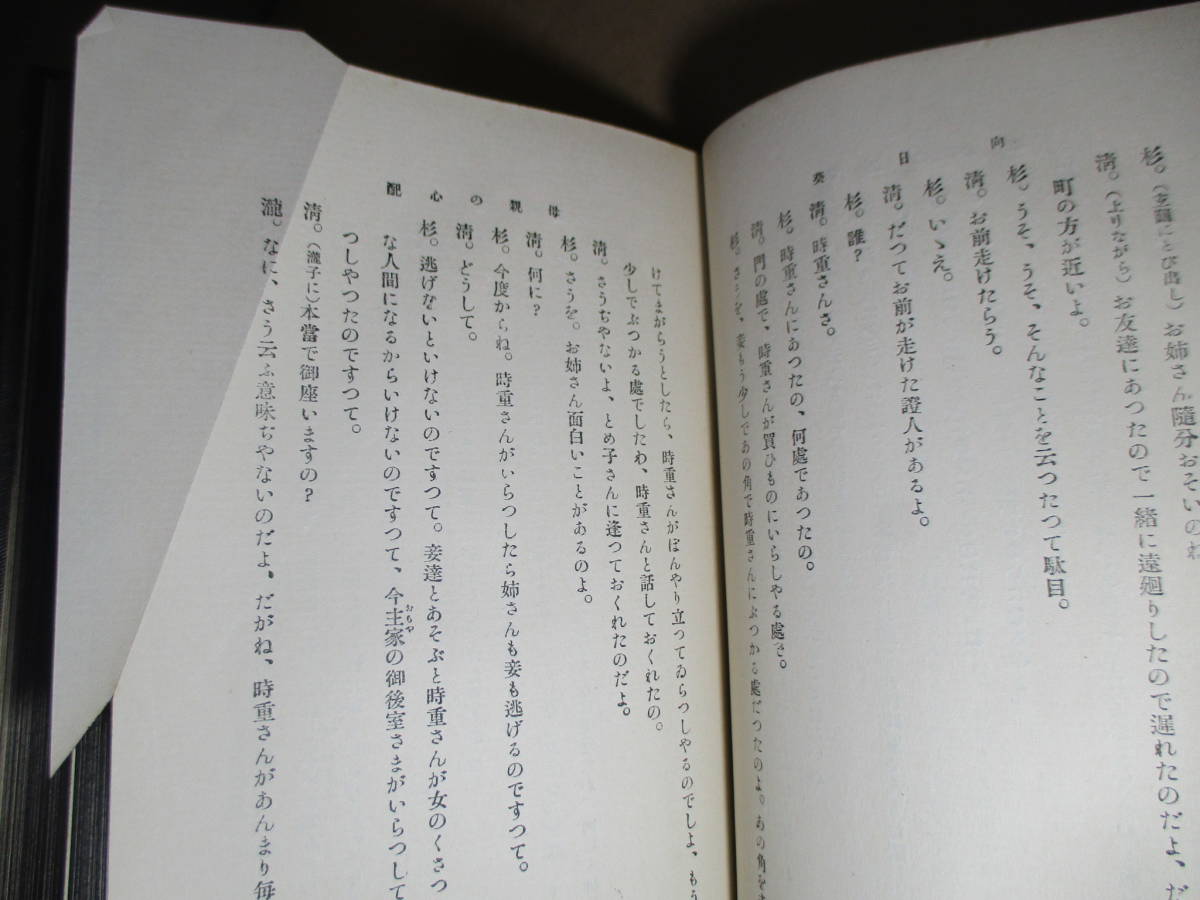 杉。(玄關にとび出し)お姉さん隨分おそいのね
淸。(上りながら)お友達にあつたので一緖に遠廻りしたので遲れたのだよ、だ
町の方が近いよ。
杉。うそ、うそ、そんなことを云つたつて駄目。
淸。お前走けたらう。
杉。いゝえ。
淸。だつてお前が走けた證人があるよ。
杉。誰?
淸。時重さんさ。
杉。時重さんにあつたの、何處であつたの。
淸。門の處で、時重さんが買ひものにいらしやる處さ。
杉。さうを、妾もう少しであの角で時重さんにぶつかる處だつたのよ。あの角をま
向日葵
けてまがらうとしたら、時重さんがぼんやり立つてゐらつしやるのでしよ、もう
少しでぶつかる處でしたわ、時重さんと話しておくれたの。
淸。さうぢやないよ、とめ子さんに逢つておくれたのだよ。
杉。さうを。お姉さん面白いことがあるのよ。
淸。何に?
杉。今度からね。時重さんがいらつしたら姉さんも妾も逃げるのですつて。
淸。どうして。
杉。逃げないといけないのですつて。妾達とあそぶと時重さんが女のくさつ
な人間になるからいけないのですつて、今主家の御後室さまがいらつして
おもや
つしやつたのですつて。
淸。(瀧子に)本當で御座いますの?
瀧。なに、さう云ふ意味ぢやないのだよ、だがね、時重さんがあんまり每
母親の心配